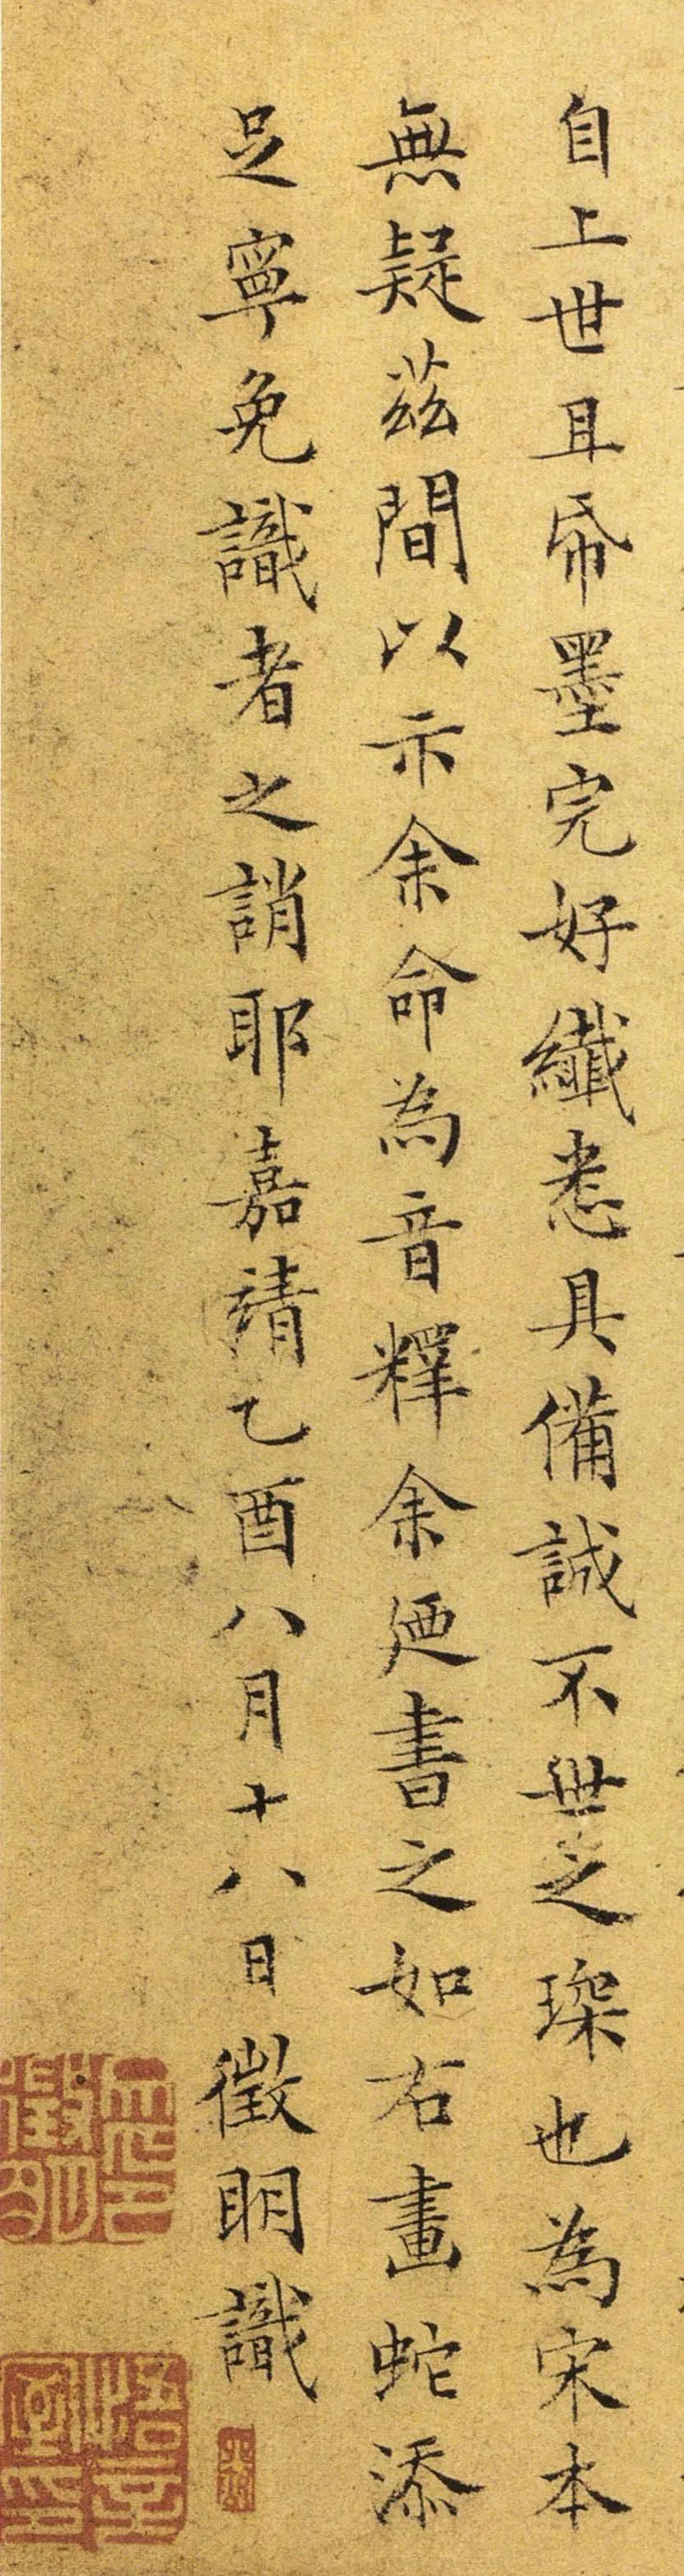 自上世且帋墨完好纖悉具備誠不世之琛也為宋本
無疑茲間以示余命為音釋余廼書之如右畫蛇添
足寧免識者之誚耶嘉靖乙酉八月十八日徵明識
徵明印
悟言室印